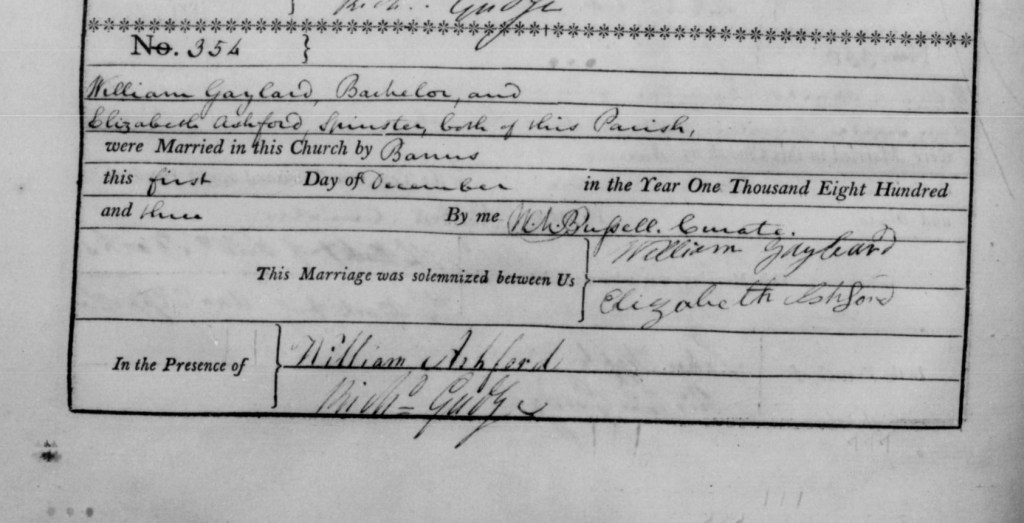 Rich. Gudge
No. 354
William Gaylard, Bachelor, and
Elizabeth Ashford, Spinster, both of this Parish,
were Married in this Church by Banns
this first Day of December in the Year One Thousand Eight Hundred
and three By me Russell. Curate.
William Gaylard
This Marriage was solemnized between Us
Elizabeth Ashford
William Ashford
In the Presence of
Richd Gudge